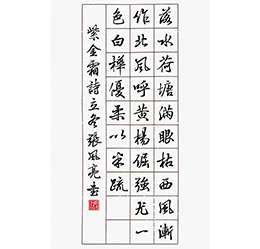 落水荷塘滿眼枯西風漸
作北風呼黃楊倔強尤一
色白樺優柔以半疏
紫金霜詩立冬張風亮書